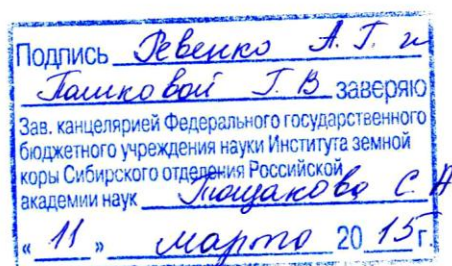 Подпись Ревенко А. Г. и
Пашковой Г. В заверяю
Зав. канцелярией Федерального государственного
бюджетного учреждения науки Института земной
коры Сибирского отделения Российской
академии наук Тощакова С. Н
« 11 » марта 20 15 г.